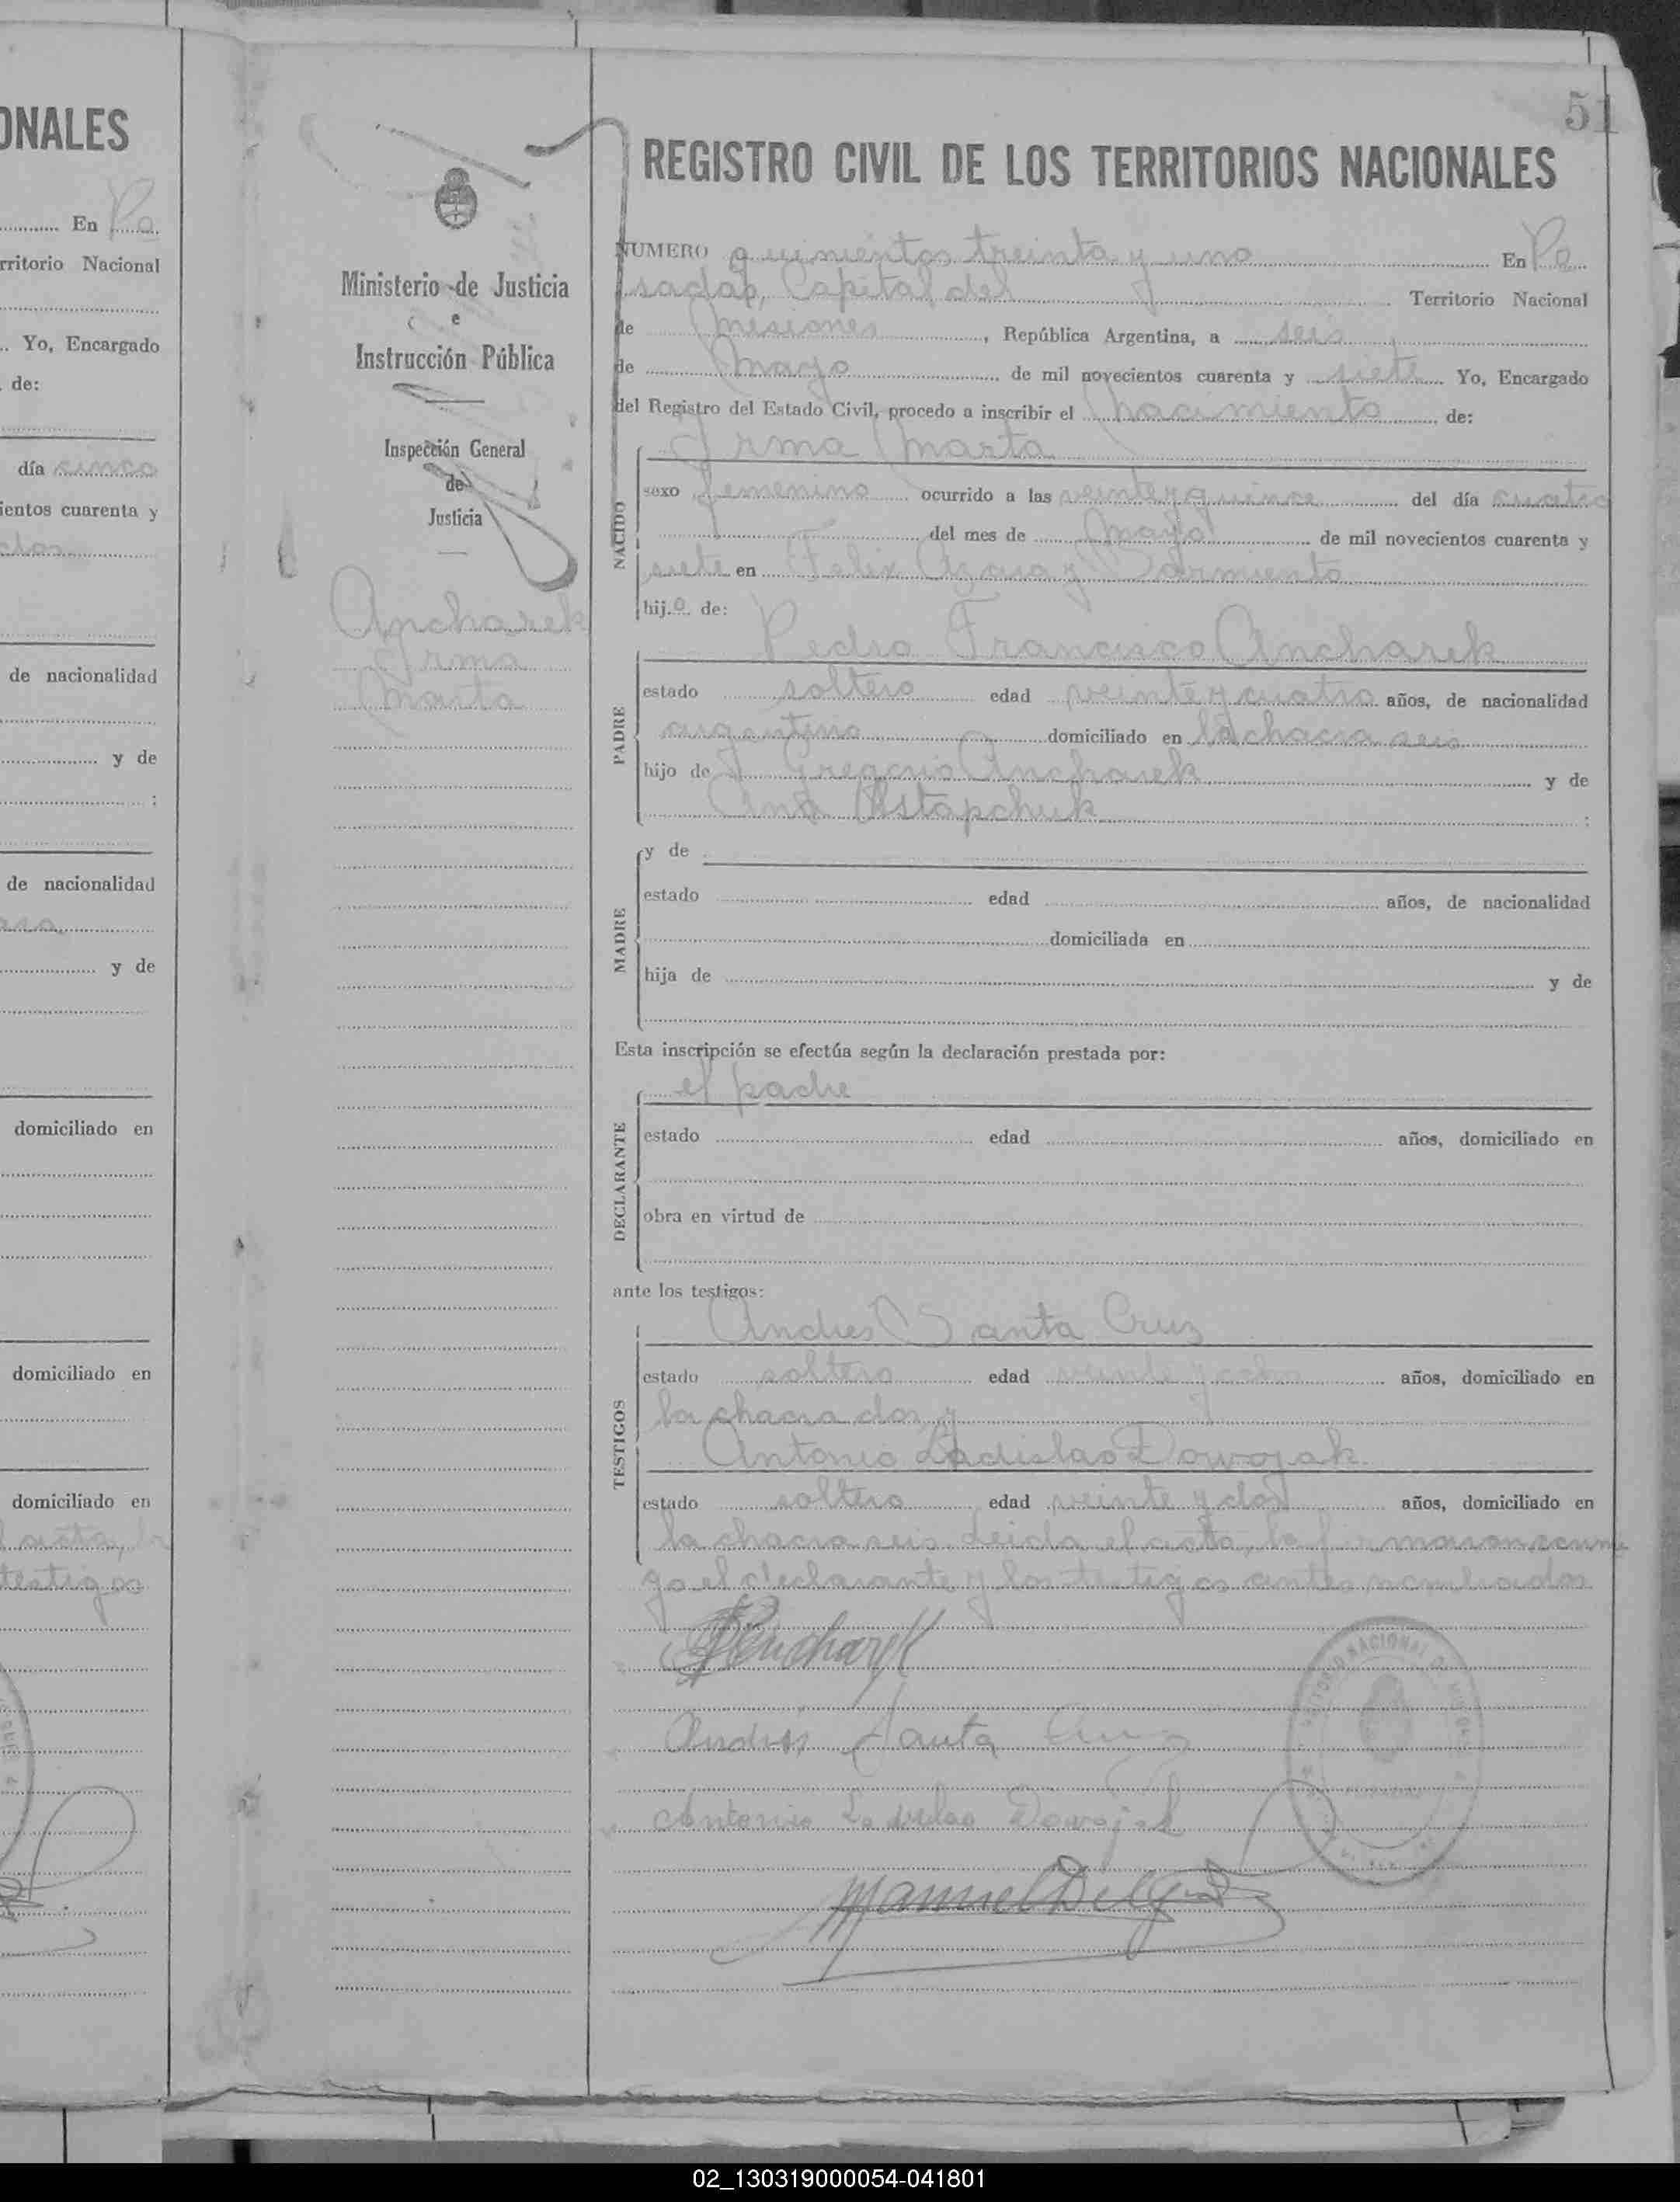 ONALES
En Po
rritorio Nacional
Yo, Encargado
de:
día cinco
ientos cuarenta y
de nacionalidad
y de
;
de nacionalidad
y de
domiciliado en
domiciliado en
domiciliado en
acta, la
testigos
Ministerio de Justicia
e
Instrucción Pública
Inspección General
de
Justicia
Ancharek
Irma
Marta
51
REGISTRO CIVIL DE LOS TERRITORIOS NACIONALES
NUMERO quinientos treinta y uno En Po
sadas, Capital del Territorio Nacional
de Misiones, República Argentina, a seis
de Mayo de mil novecientos cuarenta y siete Yo, Encargado
del Registro del Estado Civil, procedo a inscribir el nacimiento de:
Irma Marta
NACIDO
sexo femenino ocurrido a las veinte y quince del día cuatro
del mes de Mayo de mil novecientos cuarenta y
siete en Felix Azara y Sarmiento
hijo de:
Pedro Francisco Ancharek
PADRE
estado soltero edad veinte y cuatro años, de nacionalidad
argentino domiciliado en la chacra seis
hijo de Gregorio Ancharek y de
Ana Astapchuk ;
MADRE
y de
estado edad años, de nacionalidad
domiciliada en
hija de y de
Esta inscripción se efectúa según la declaración prestada por:
el padre
DECLARANTE
estado edad años, domiciliado en
obra en virtud de
ante los testigos:
Andres Santa Cruz
TESTIGOS
estado soltero edad veinte y ocho años, domiciliado en
la chacra dos y
Antonio Ladislao Dowojak
estado soltero edad veinte y dos años, domiciliado en
la chacra seis. Leida el acta, la firmaron conmi
go el declarante y los testigos antes nombrados
Ancharek
Andrés Santa Cruz
Antonio Ladislao Dowojak
Manuel Delgado
02_130319000054-041801